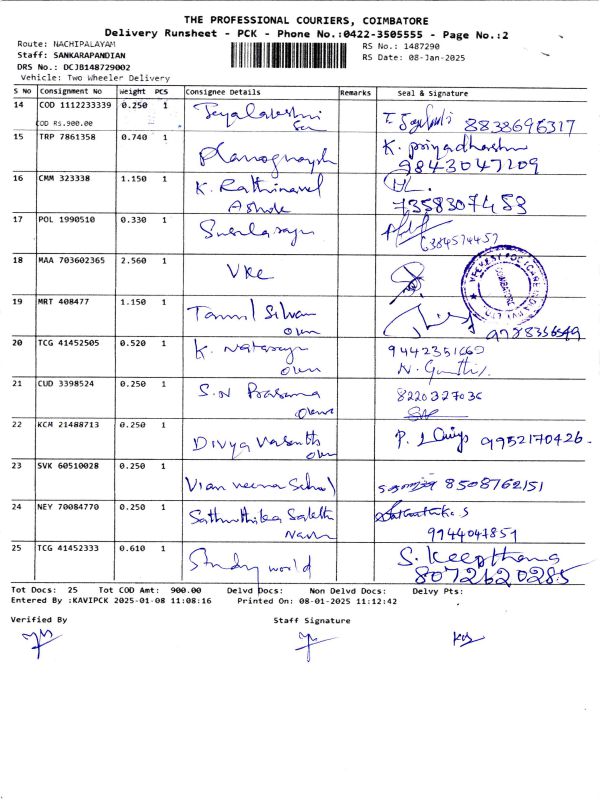 THE PROFESSIONAL COURIERS, COIMBATORE
Delivery Runsheet - PCK - Phone No.:0422-3505555 - Page No.:2
Route: NACHIPALAYAM
RS No.: 1487290
Staff: SANKARAPANDIAN
RS Date: 08-Jan-2025
DRS No.: DCJB148729002
Vehicle: Two Wheeler Delivery
S No Consignment No Weight PCS Consignee Details Remarks Seal & Signature
14 COD 1112233339 0.250 1 Jeyalakshmi 8838696317
COD RS.900.00
15 TRP 7861358 0.740 1 K. Priyadharshini
9843047209
16 CMM 323338 1.150 1 K. Rathinavel
Ashok 7358307453
17 POL 1990510 0.330 1
18 MAA 703602365 2.560 1 VKC
COIMBATORE
19 MRT 408477 1.150 1 Tamil Selvan
own
20 TCG 41452505 0.520 1 K. Natarajan 9442351660
own N. Gandhi.
21 CUD 3398524 0.250 1 S.N Prasanna 8220327036
own
22 KCH 21488713 0.250 1 Divya Vasanth P. 9952170426.
own
23 SVK 60510028 0.250 1 School 8508762151
24 NEY 70084770 0.250 1
9944047851
25 TCG 41452333 0.610 1 Study world S. Keepthana
8072620285
Tot Docs: 25 Tot COD Amt: 900.00 Delvd Docs: Non Delvd Docs: Delvy Pts:
Entered By :KAVIPCK 2025-01-08 11:08:16 Printed On: 08-01-2025 11:12:42
Verified By Staff Signature